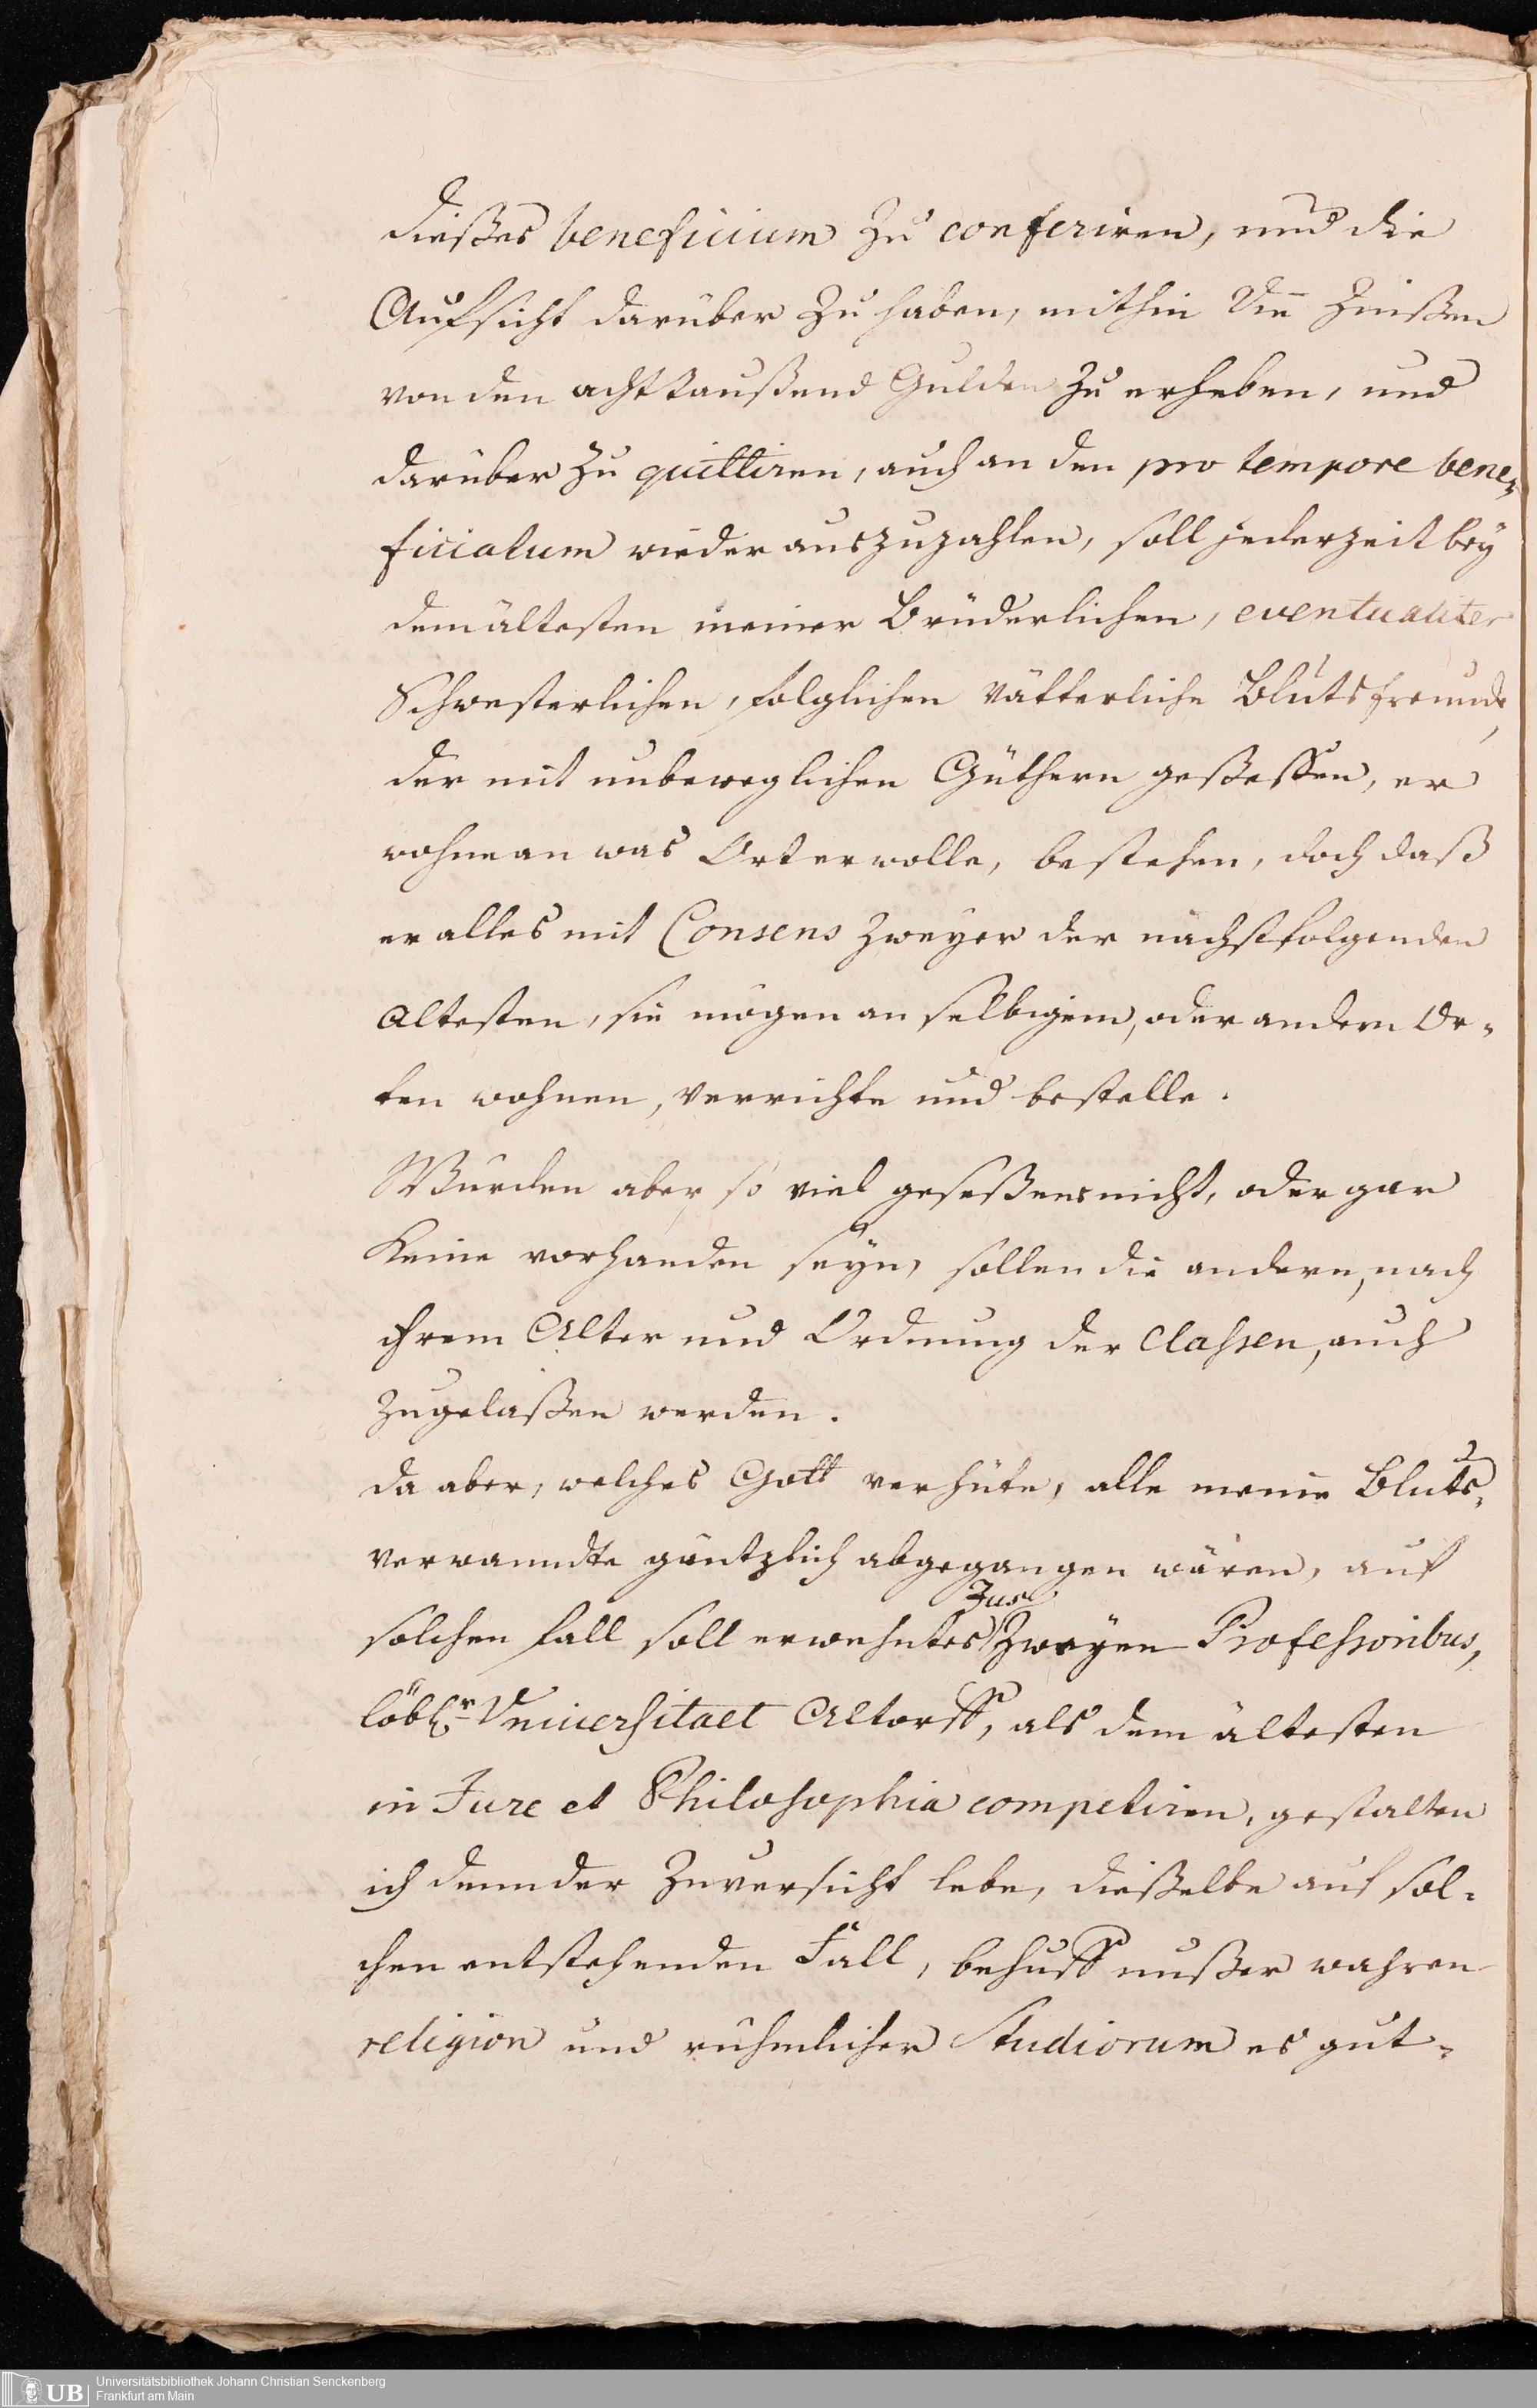 dießes beneficium zu conferiren, und die
Aufsicht darüber zu haben, mithin die Zinßen
von den acht taußend Gulden zu erheben, und
darüber zu quittiren, auch an den pro tempore bene-
ficiatum wieder auszuzahlen, soll jederzeit bey
dem ältesten meiner Brüderlichen, eventualiter
Schwesterlichen, folglichen Vätterliche Blutsfreunde,
der mit unbeweglichen Güthern geßessen, er
wohne an was Ort er wolle, bestehen, doch daß
er alles mit Consens zweyer der nächstfolgenden
Altesten, sie mögen an selbigem, oder andern Or-
ten wohnen, verrichte und bestelle.
Würden aber so viel geseßener nicht, oder gar
Keine vorhanden seyn, sollen die andern, nach
ihrem Alter und Ordnung der Classen, auch
zugelaßen werden.
Da aber, welches Gott verhüte, alle meine Bluts-
verwanndte gäntzlich abgegangen wären, auf
solchen fall soll erwehntes Jus zweyen Professoribus,
löbl.r Universitaet Altorff, als dem ältesten
in Jure et Philosophia competiren, gestalten
ich denn der Zuversicht lebe, dießelbe auf sol-
chen entstehenden Fall, behuff unßer wahren
religion und rühmlicher Studiorum es gut-
Universitätsbibliothek Johann Christian Senckenberg
Frankfurt am Main
UB